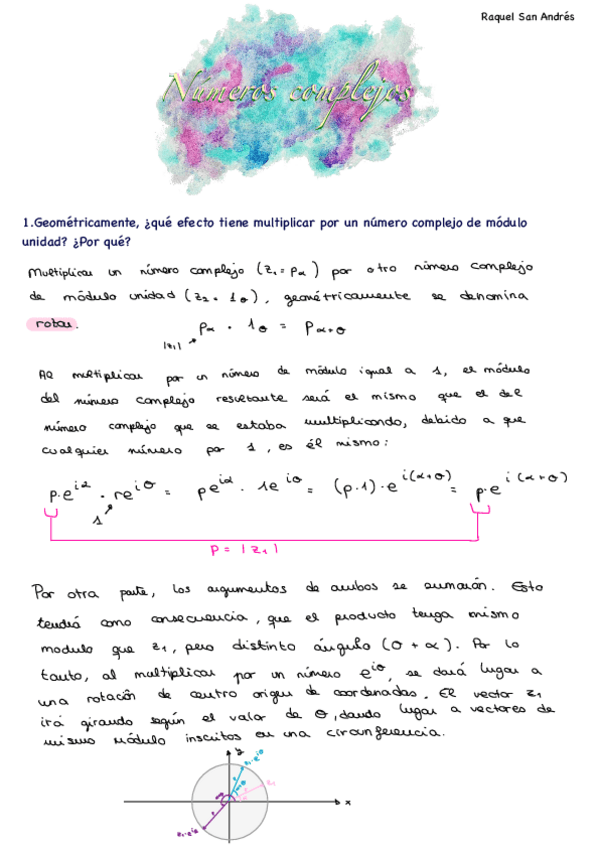 Raquel San Andrés
Números complejos
1.Geométricamente, ¿qué efecto tiene multiplicar por un número complejo de módulo
unidad? ¿Por qué?
Multiplicar un número complejo (z₁ = pα) por otro número complejo
de módulo unidad (z₂ = 1θ), geométricamente se denomina
rotar.
pα · 1θ = pα+θ
|z₁|
Al multiplicar por un número de módulo igual a 1, el módulo
del número complejo resultante será el mismo que el del
número complejo que se estaba multiplicando, debido a que
cualquier número por 1, es él mismo:
p·e^iα · re^iθ = pe^iα · 1e^iθ = (p·1)·e^i(α+θ) = p·e^i(α+θ)
1
p = |z₁|
Por otra parte, los argumentos de ambos se sumarán. Esto
tendrá como consecuencia, que el producto tenga mismo
modulo que z₁, pero distinto ángulo (θ + α). Por lo
tanto, al multiplicar por un número e^iθ, se dará lugar a
una rotación de centro origen de coordenadas. El vector z₁
irá girando según el valor de θ, dando lugar a vectores de
mismo módulo inscritos en una circunferencia.
y
z₁·e^iθ
z₁
x
z₁·e^iθ